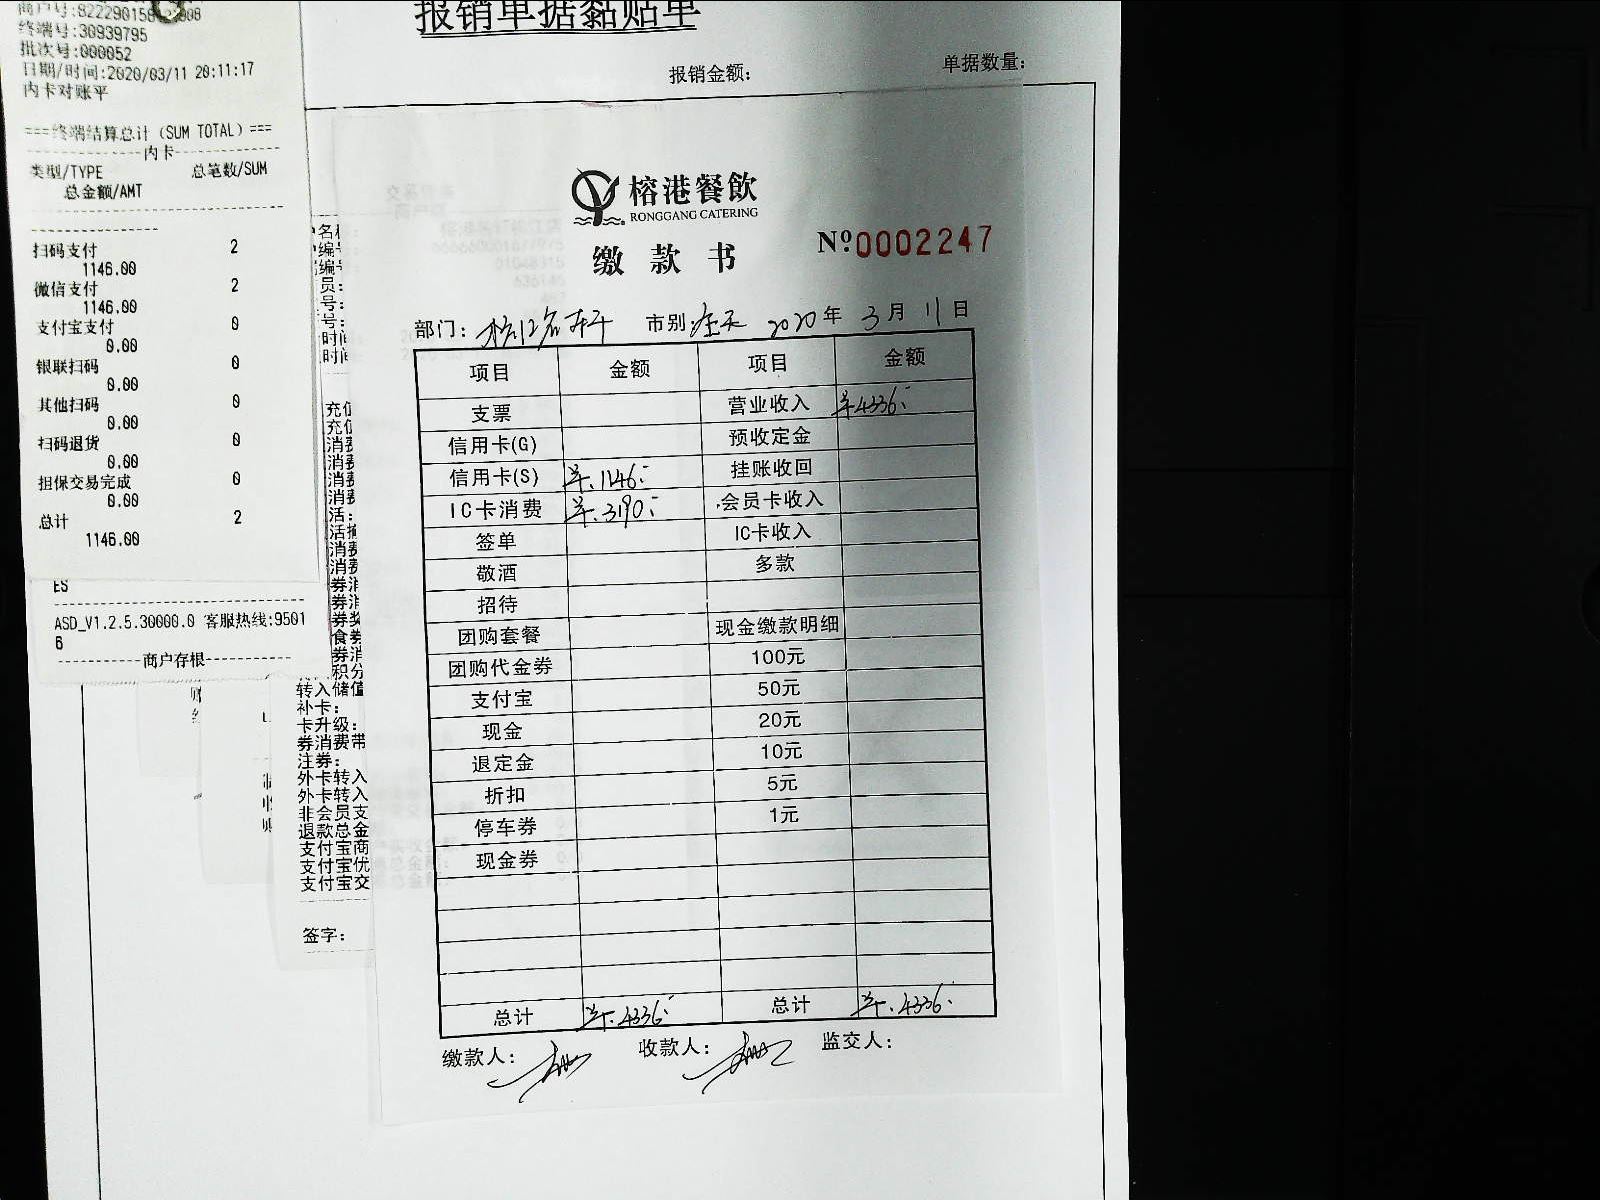 报销单据黏贴单
报销金额：
单据数量：
终端号:30939795
批次号:000052
日期/时间:2020/03/11 20:11:17
内卡对账平
===终端结算总计 (SUM TOTAL)===
内卡
类型/TYPE 总笔数/SUM
总金额/AMT
扫码支付 2
1146.00
微信支付 2
1146.00
支付宝支付 0
0.00
银联扫码 0
0.00
其他扫码 0
0.00
扫码退货 0
0.00
担保交易完成 0
0.00
总计 2
1146.00
ES
ASD_V1.2.5.30000.0 客服热线:9501
6
商户存根
转入储值
补卡：
卡升级：
券消费带
注券：
外卡转入
外卡转入
非会员支
退款总金
支付宝商
支付宝优
支付宝交
签字：
榕港餐飲
RONGGANG CATERING
缴款书
Nº0002247
部门： 市别 2020年 3月 11日
项目 金额 项目 金额
支票 营业收入 ¥4336.-
信用卡(G) 预收定金
信用卡(S) ¥.1146.- 挂账收回
IC卡消费 ¥.3190.- 会员卡收入
签单 IC卡收入
敬酒 多款
招待
团购套餐 现金缴款明细
团购代金券 100元
支付宝 50元
现金 20元
退定金 10元
折扣 5元
停车券 1元
现金券
总计 ¥.4336.- 总计 ¥.4336.-
缴款人： 收款人： 监交人：